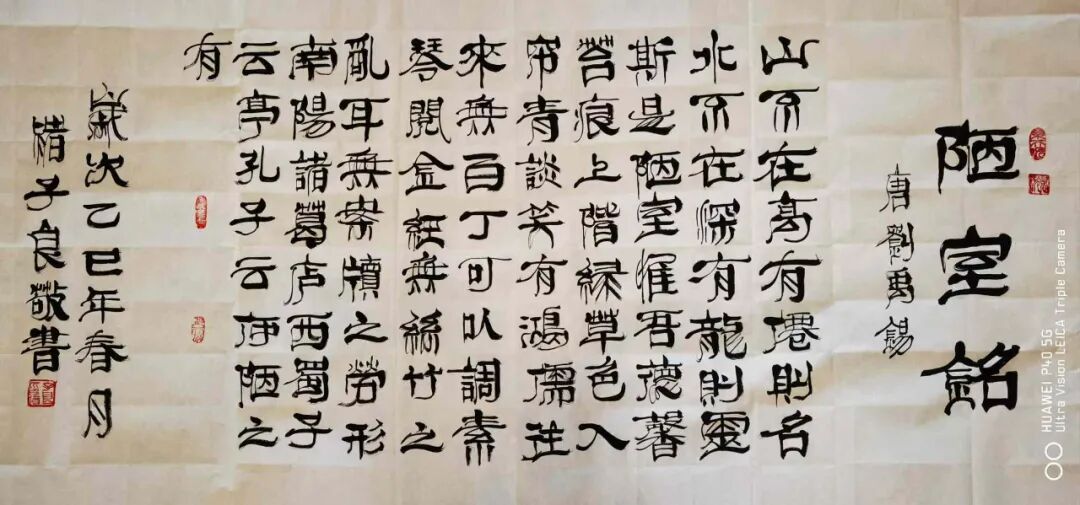 陋室銘
唐劉禹錫
山不在高有僊則名
水不在深有龍則靈
斯是陋室惟吾德馨
苔痕上階緑草色入
帘青談笑有鴻儒往
來無白丁可以調素
琴閱金經無絲竹之
亂耳無案牘之勞形
南陽諸葛庐西蜀子
云亭孔子云何陋之
有
歲次乙巳年春月
子良敬書
HUAWEI P40 5G
Ultra Vision LEICA Triple Camera